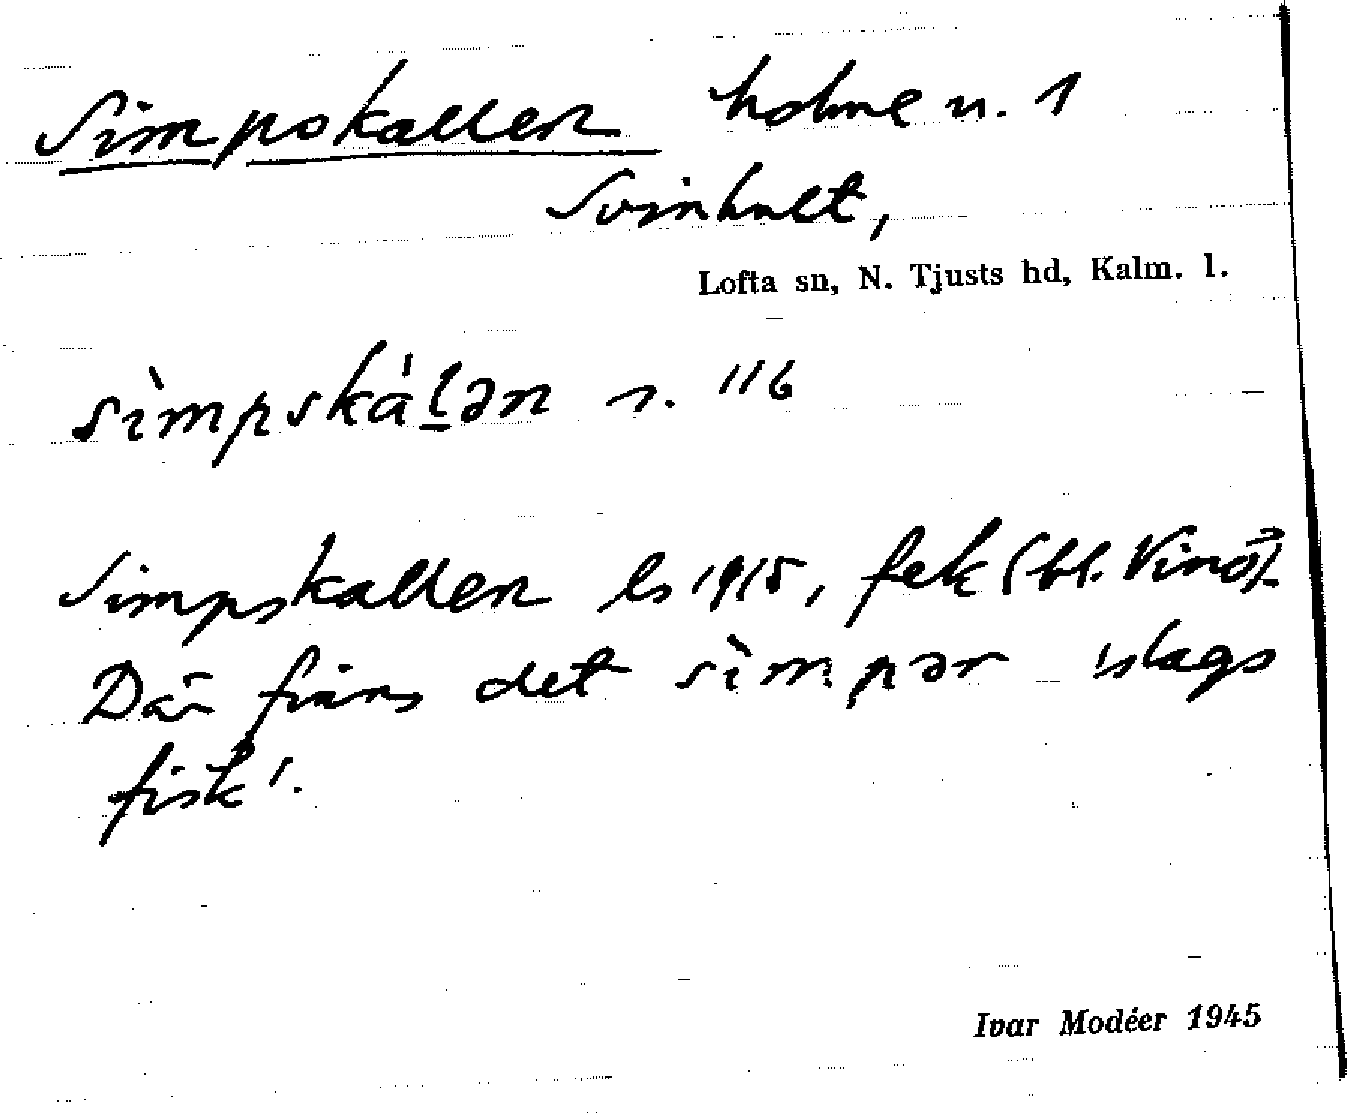 Simpskallen holme n. 1
Svinhult,
Lofta sn, N. Tjusts hd, Kalm. l.
sìmpskàḻən s. 116
Simpskallen ls 1915, fek (bl. Vinö).
Där finns det sìmpər 'slags
fisk'.
Ivar Modéer 1945